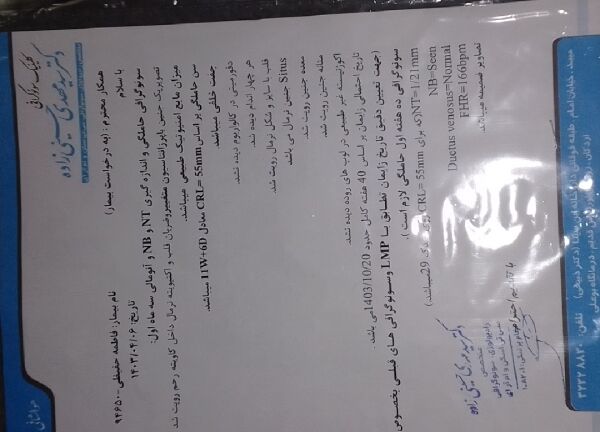 کلینیک سونوگرافی
دکتر سید مهدی حسینی زاده
نام بیمار: فاطمه حقیقی-۹۴۶۵۰
تاریخ: ۱۴۰۳/۰۴/۰۶
همکار محترم: (به درخواست بیمار)
با سلام
سونوگرافی حاملگی و اندازه گیری NT و NB و آنومالی سه ماه اول:
تصویر یک جنین با پرزانتاسیون متغییر و ضربان قلب و اکتیویته نرمال داخل کاویته رحم رویت شد
میزان مایع آمنیوتیک طبیعی میباشد.
سن حاملگی بر اساس CRL= 55mm معادل 11W+6D میباشد.
جفت خلفی میباشد.
دفورمیتی در کالواریوم دیده نشد.
هر چهار اندام دیده شد.
قلب با سایز و شکل نرمال رویت شد.
Situs جنین نرمال می باشد
معده جنین رویت شد.
مثانه جنین رویت شد.
اکوژنیسته غیر طبیعی در لوپ های روده دیده نشد.
تاریخ احتمالی زایمان بر اساس 40 هفته کامل حدود 1403/10/20 می باشد.
(جهت تعیین دقیق تاریخ زایمان تطابق با LMP و سونوگرافی های قبلی بخصوص
سونوگرافی ده هفته اول حاملگی لازم است).
NT=1.21mm (که برای CRL= 55mm روی صدک 29 میباشد)
NB=Seen
Ductus venosus=Normal
FHR=166bpm
تصاویر ضمیمه میباشد.
با تقدیم احترام
دکتر سید مهدی حسینی زاده
۳۲۲۲۸۸۲۰